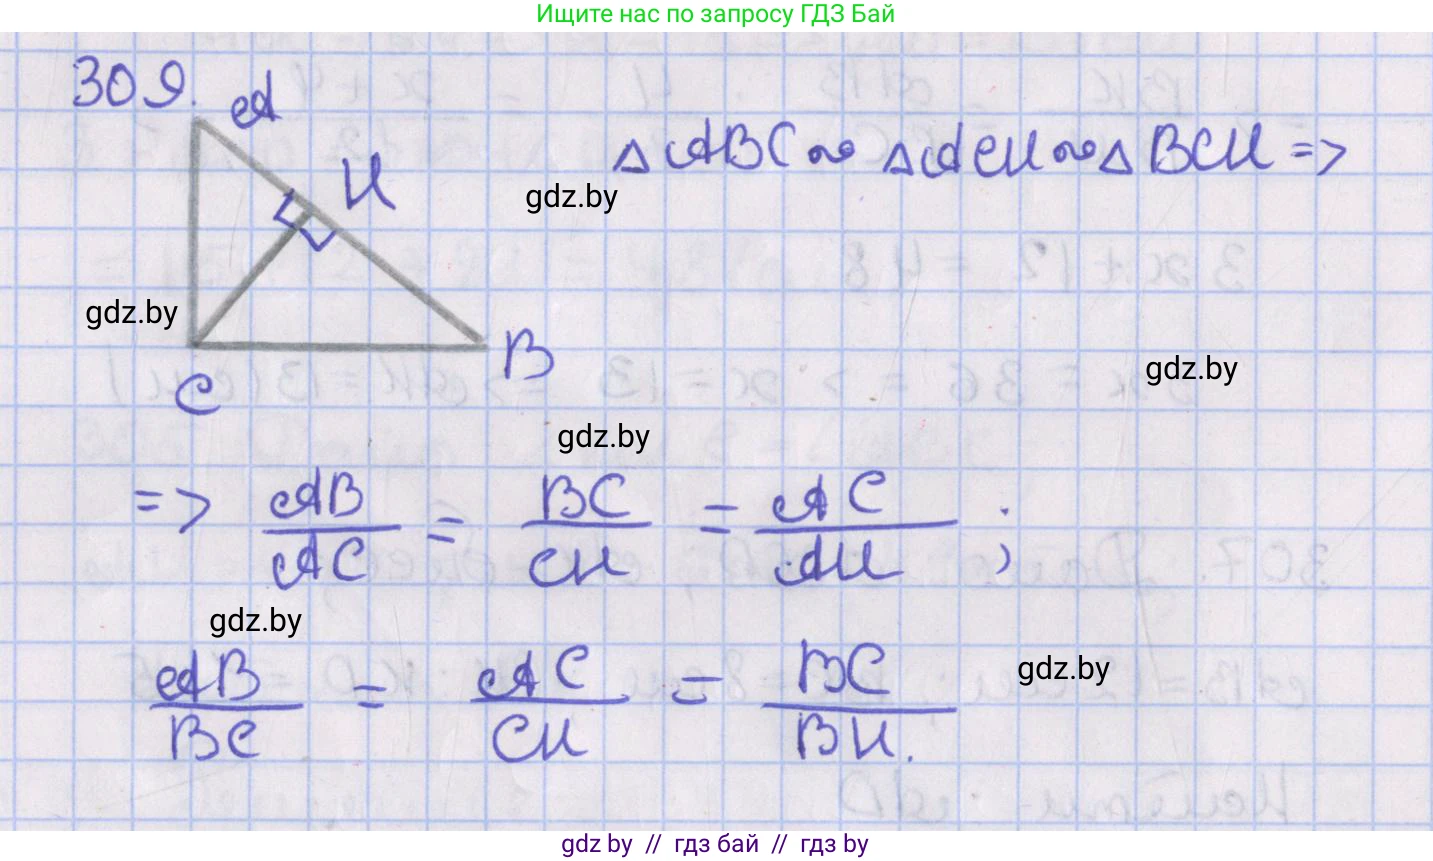 Ищите нас по запросу ГДЗ Бай
309.
A
H
C
B
△ABC ∾ △ACH ∾ △BCH =>
gdz.by
gdz.by
gdz.by
gdz.by
=> AB/AC = BC/CH = AC/AH ;
gdz.by
gdz.by
AB/BC = AC/CH = BC/BH.
gdz.by // гдз бай // гдз by